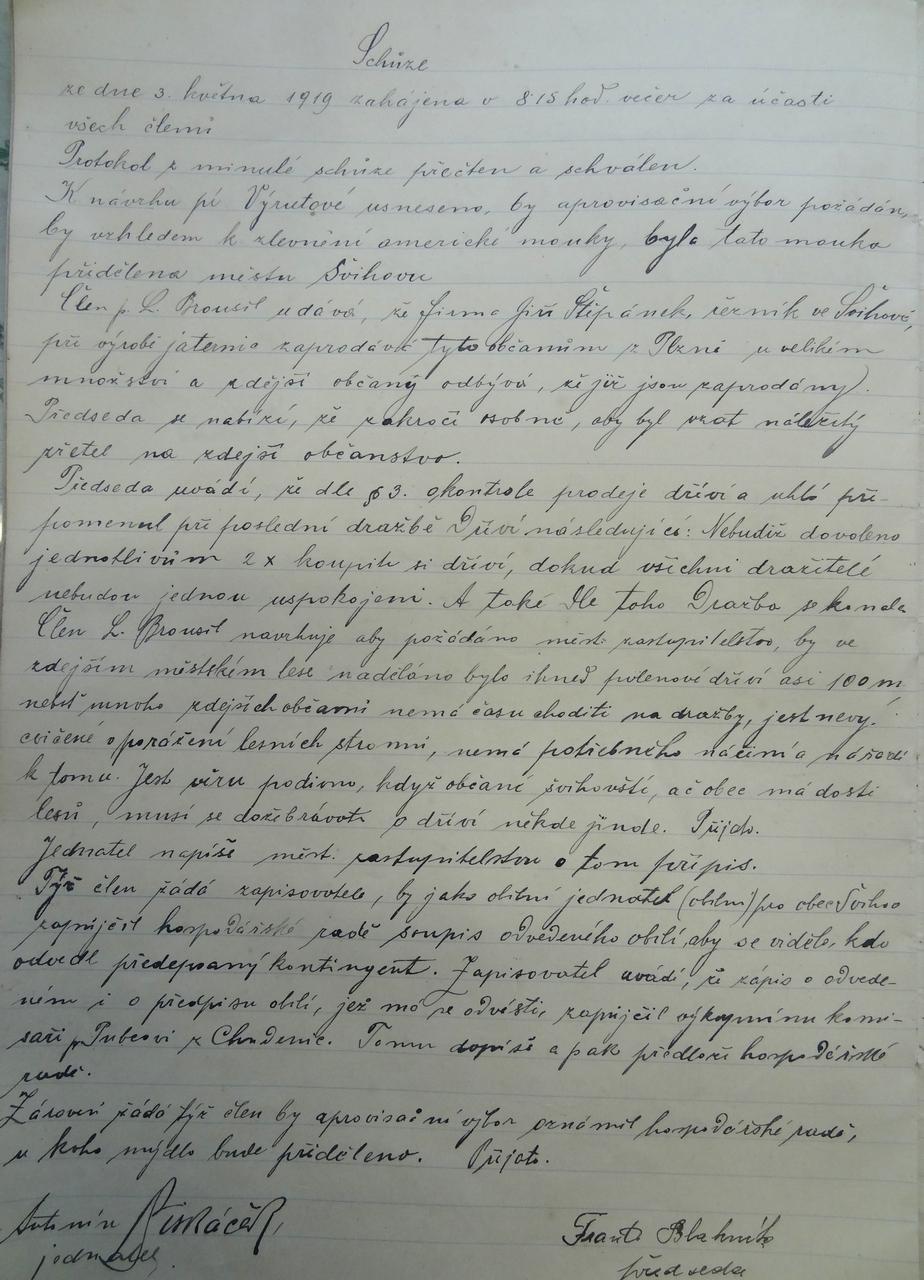 Schůze
ze dne 3. května 1919 zahájena v 8.15 hod. večer za účasti
všech členů
Protokol z minulé schůze přečten a schválen.
K návrhu pí Výrutové usneseno, by aprovisační výbor požádán,
by vzhledem k zlevnění americké mouky, byla tato mouka
přidělena městu Švihovu
Člen p. L. Brousil udává, že firma Jiří Štěpánek, řezník ve Švihově,
při výrobě jaternic zaprodává tyto občanům z Plzně u velikém
množství a zdější občany odbývá, že již jsou zaprodány.
Předseda se nabízí, že zakročí osobně, aby byl vzat náležitý
zřetel na zdejší občanstvo.
Předseda uvádí, že dle § 3. o kontrole prodeje dříví a uhlí při-
pomenul při poslední dražbě Dříví následující: Nebudiž dovoleno
jednotlivům 2 x koupiti si dříví, dokud všichni dražitelé
nebudou jednou uspokojeni. A také dle toho Dražba se konala
Člen L. Brousil navrhuje aby požádáno měst. zastupitelstvo, by ve
zdejším městském lese naděláno bylo ihned polenové dříví asi 100 m
neboť mnoho zdejších občanů nemá času choditi na dražby, jest nevy-
cvičené o porážení lesních stromů, nemá potřebného náčiní a nářadí
k tomu. Jest věru podivno, když občané švihovští, ač obec má dosti
lesů, musí se dožebrávati o dříví někde jinde. Přijato.
Jednatel napíše měst. zastupitelstvu o tom přípis.
Týž člen žádá zapisovatele, by jako obilní jednatel (obilní) pro obec Švihov
zapůjčil hospodářské radě soupis odvedeného obilí, aby se vidělo, kdo
odvedl předepsaný kontingent. Zapisovatel uvádí, že zápis o odvede-
ném i o předpisu obilí, jež má se odvésti, zapůjčil výkupnímu komi-
saři p. z Chudenic. Tomu dopíše a pak předloží hospodářské
radě.
Zároveň žádá týž člen by aprovisační výbor oznámil hospodářské radě,
u koho mýdlo bude přiděleno. Přijato.
Antonín
jednatel.
Frant. Blahník
předseda